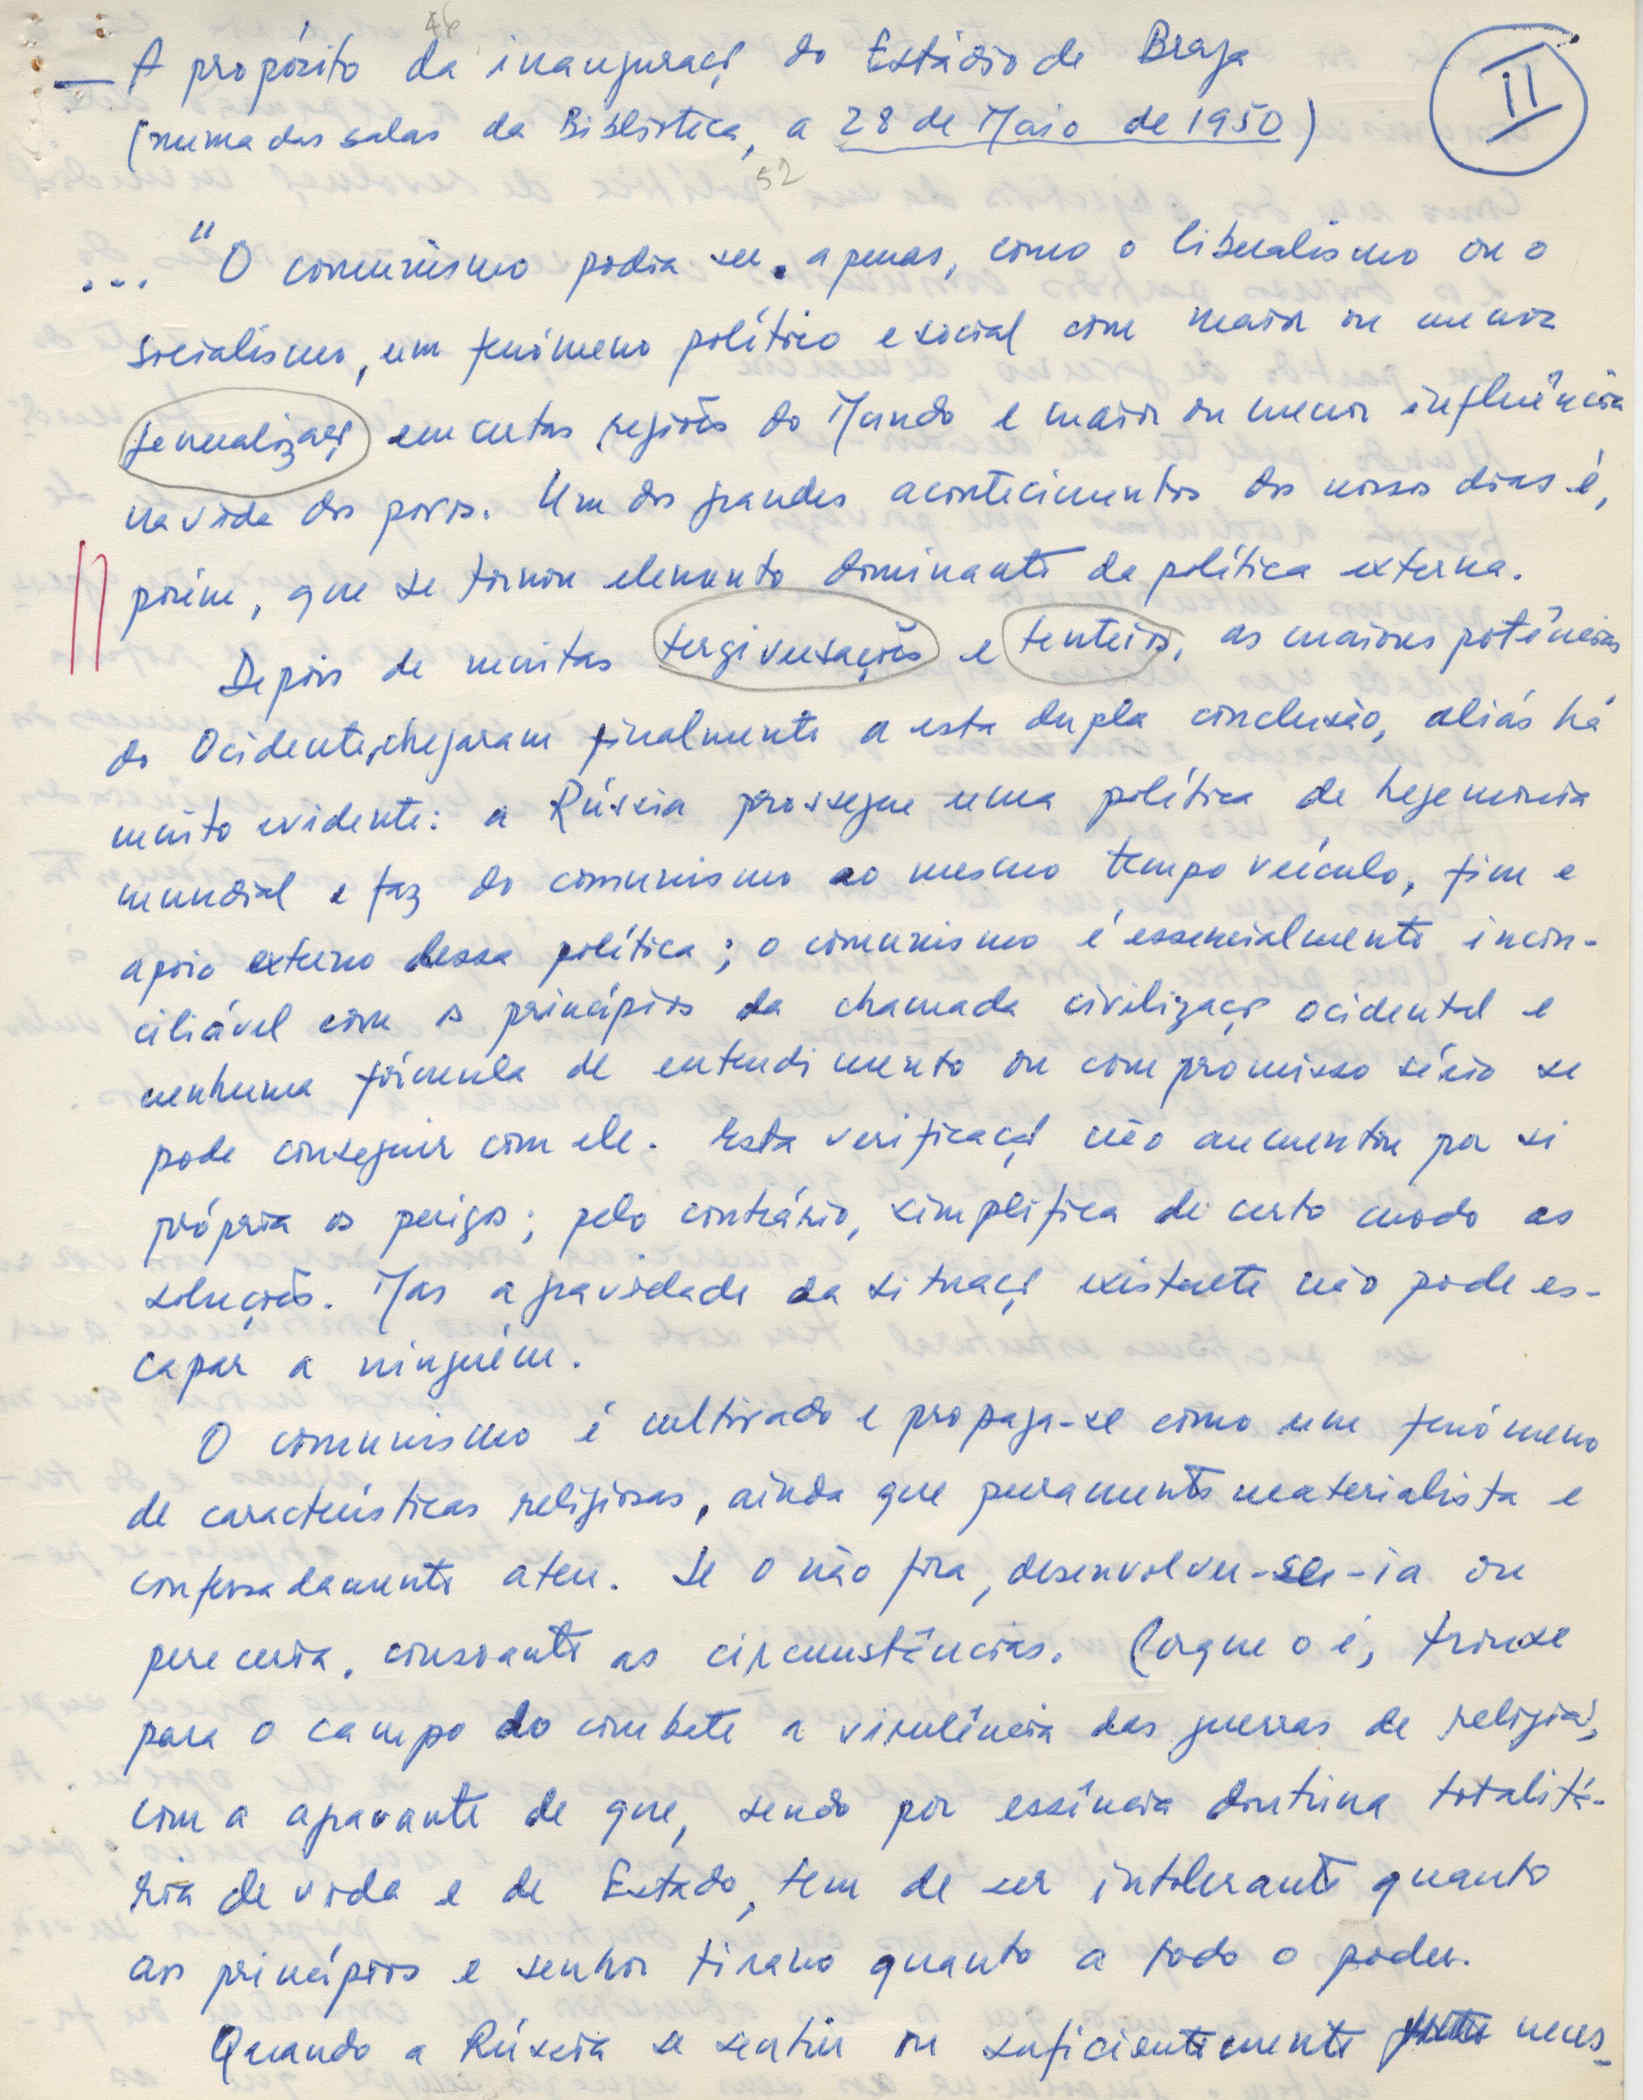 46
— A propósito da inauguraç̃ do Estádio de Braga
II
(numa das salas da Biblioteca, a 28 de Maio de 1950)
52
... "O comunismo podia ser, apenas, como o liberalismo ou o
socialismo, um fenómeno político e social com maior ou menor
generalizaç̃ em certas regiões do Mundo e maior ou menor influência
na vida dos povos. Um dos grandes acontecimentos dos nossos dias é,
porém, que se tornou elemento dominante da política externa.
Depois de muitas tergiversações e tenteios, as maiores potências
do Ocidente, chegaram finalmente a esta dupla conclusão, aliás há
muito evidente: a Rússia prossegue uma política de hegemonia
mundial e faz do comunismo ao mesmo tempo veículo, fim e
apoio externo dessa política; o comunismo é essencialmente incon-
ciliável com os princípios da chamada civilizaç̃ ocidental e
nenhuma fórmula de entendimento ou compromisso sério se
pode conseguir com ele. Esta verificaç̃ não aumentou por si
própria os perigos; pelo contrário, simplifica de certo modo as
soluções. Mas a gravidade da situaç̃ existente não pode es-
capar a ninguém.
O comunismo é cultivado e propaga-se como um fenómeno
de características religiosas, ainda que puramente materialista e
confessadamente ateu. Se o não fora, desenvolver-se-ia ou
pereceria, consoante as circunstâncias. Porque o é, trouxe
para o campo do combate a virulência das guerras de religião,
com a agravante de que, sendo por essência doutrina totalitá-
ria de vida e de Estado, tem de ser intolerante quanto
aos princípios e senhor tirano quanto a todo o poder.
Quando a Rússia se sentir ou suficientemente neces-